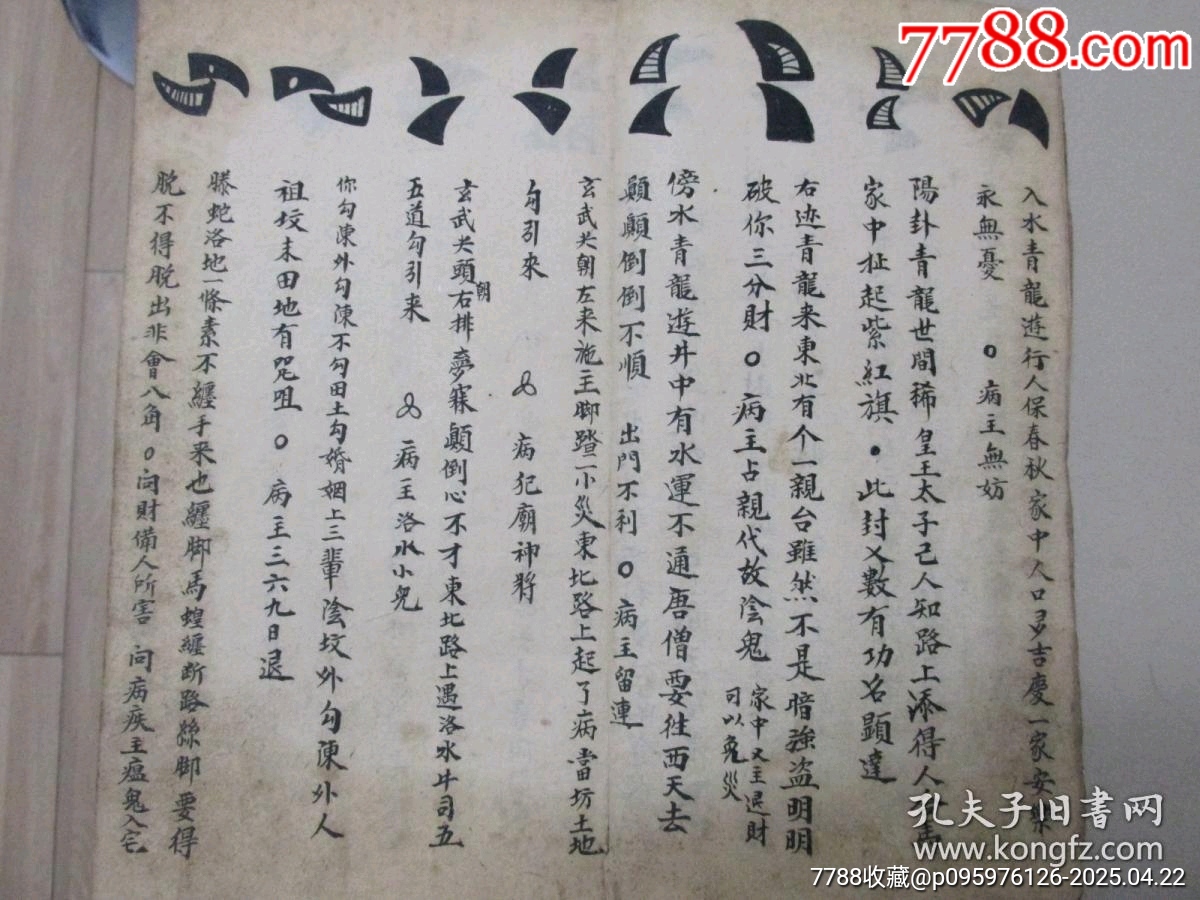 7788.com
入水青龍遊行人保春秋家中人口多吉慶一家安樂
永無憂 〇病主無妨
陽卦青龍世間稀皇王太子己人知路上添得人
家中扯起紫紅旗•此封义數有功名顯達
右迹青龍来東北有个一親台雖然不是暗強盗明明
破你三分財〇病主占親代故陰鬼 家中又主退財
可以免災
傍水青龍遊井中有水運不通唐僧要往西天去
顛顛倒倒不順 出門不利〇病主留連
玄武头朝左来施主脚踏一小災東北路上起了病當坊土地
勾引来 病犯廟神將
玄武头朝右排夢寐顛倒心不才東北路上遇洛水斗司五
五道勾引来 病主洛水小鬼
你勾陳外勾陳不勾田土勾婚姻上三輩陰坟外勾陳外人
祖坟未田地有咒咀〇病主三六九日退
縢蛇洛地一條素不纏手来也纏脚馬蝗纏断路絲脚要得
脱不得脱出非會八角〇问財備人所害 问病疾主瘟鬼入宅
孔夫子旧书网
www.kongfz.com
7788收藏@p095976126-2025.04.22